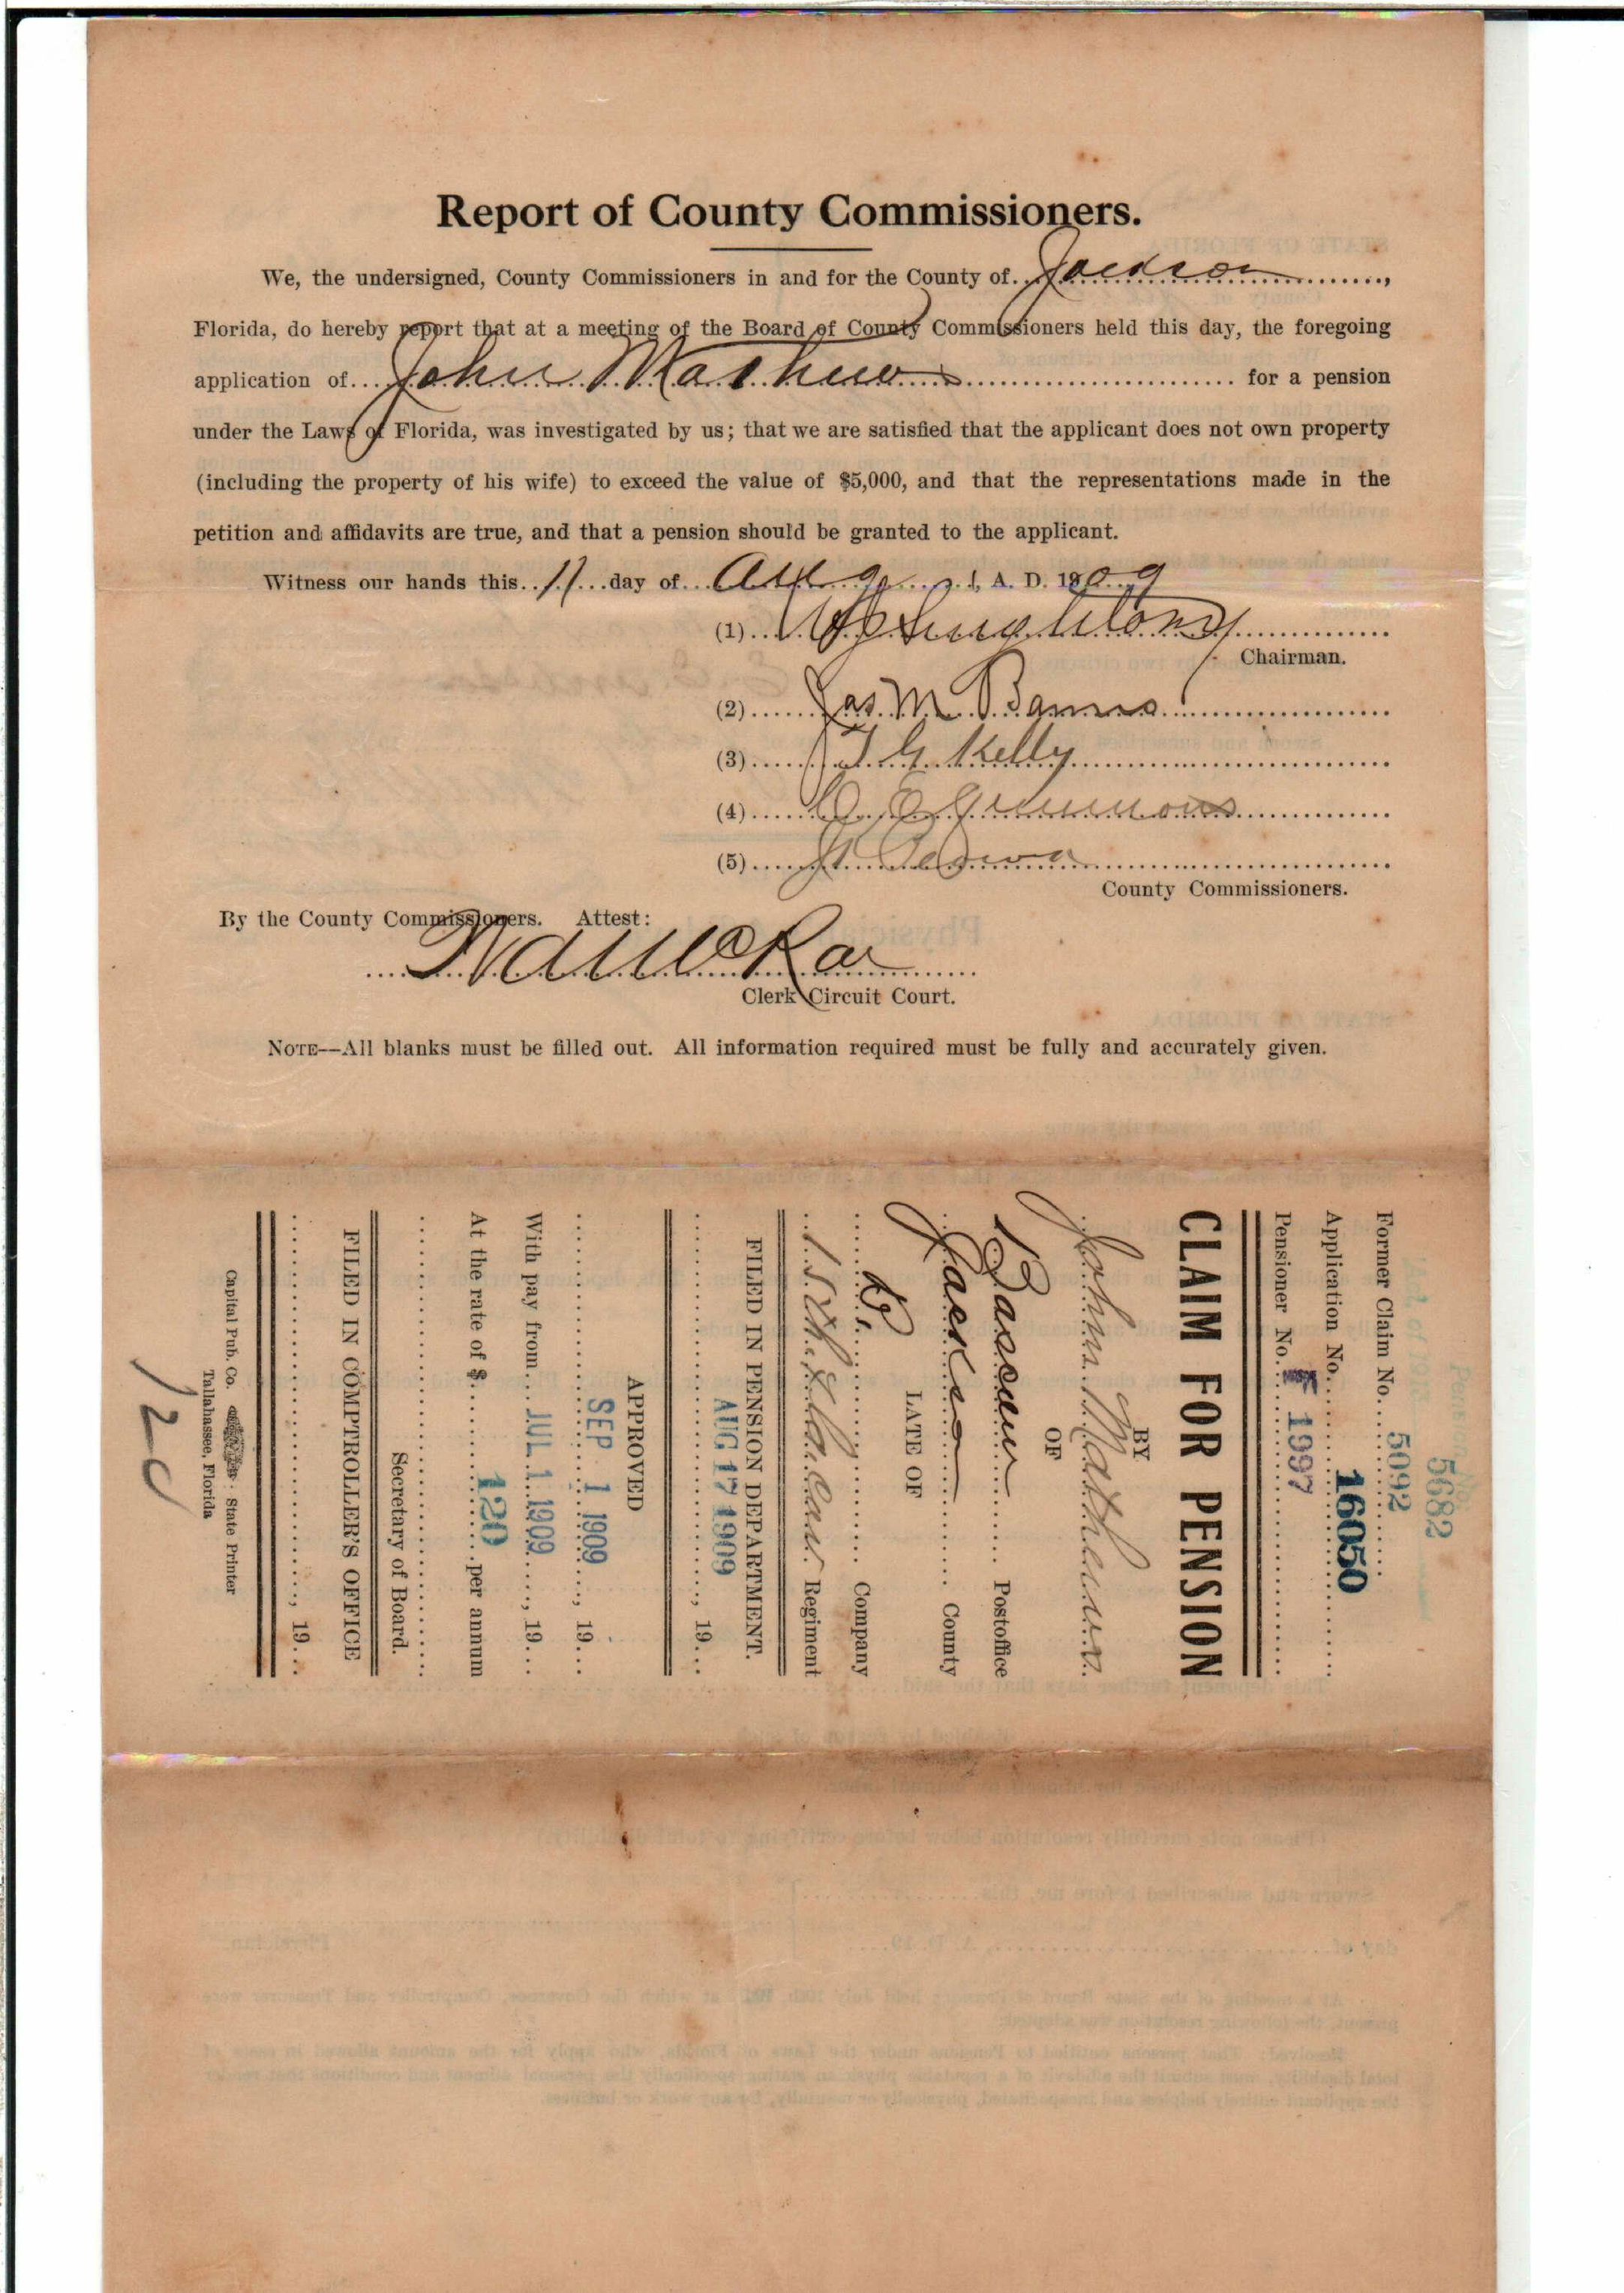 Report of County Commissioners.
We, the undersigned, County Commissioners in and for the County of....Jackson....,
Florida, do hereby report that at a meeting of the Board of County Commissioners held this day, the foregoing
application of....John Mathews.... for a pension
under the Laws of Florida, was investigated by us; that we are satisfied that the applicant does not own property
(including the property of his wife) to exceed the value of $5,000, and that the representations made in the
petition and affidavits are true, and that a pension should be granted to the applicant.
Witness our hands this..11...day of...Aug......, A. D. 1909
(1)
Chairman.
(2) Jas. M.
(3) J G Kelly
(4) C E
(5)
County Commissioners.
By the County Commissioners. Attest:
McRae
Clerk Circuit Court.
NOTE—All blanks must be filled out. All information required must be fully and accurately given.
5682
Former Claim No.... 5092
Application No.... 16050
Pensioner No.... 1997
CLAIM FOR PENSION
BY
John Mathews
OF
Bascom.... Postoffice
Jackson.... County
LATE OF
.... Company
15th Regiment
FILED IN PENSION DEPARTMENT.
AUG 17 1909 ...., 19...
APPROVED
SEP 1 1909 ...., 19...
With pay from.... JUL 1 1909 ...., 19...
At the rate of $.... 120 ....per annum
Secretary of Board.
FILED IN COMPTROLLER'S OFFICE
...., 19...
Capital Pub. Co. State Printer
Tallahassee, Florida
120